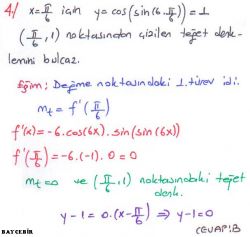 4/ x=π/6 için y=cos(sin(6.π/6))=1
(π/6,1) noktasından çizilen teğet denk-
lemini bulcaz.
Eğim; Değme noktasındaki 1. türev idi.
m_t = f'(π/6)
f'(x)=-6.cos(6x).sin(sin(6x))
f'(π/6)=-6.(-1).0=0
m_t=0 ve (π/6,1) noktasındaki teğet
denk.
y-1=0.(x-π/6) ⇒ y-1=0
CEVAP:B
BAYCEBİR